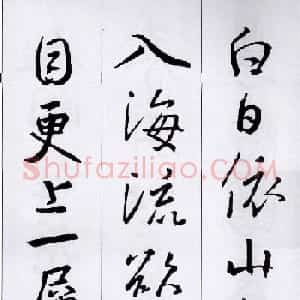 白日依山
入海流欲
目更上一层
Shufaziliao.com